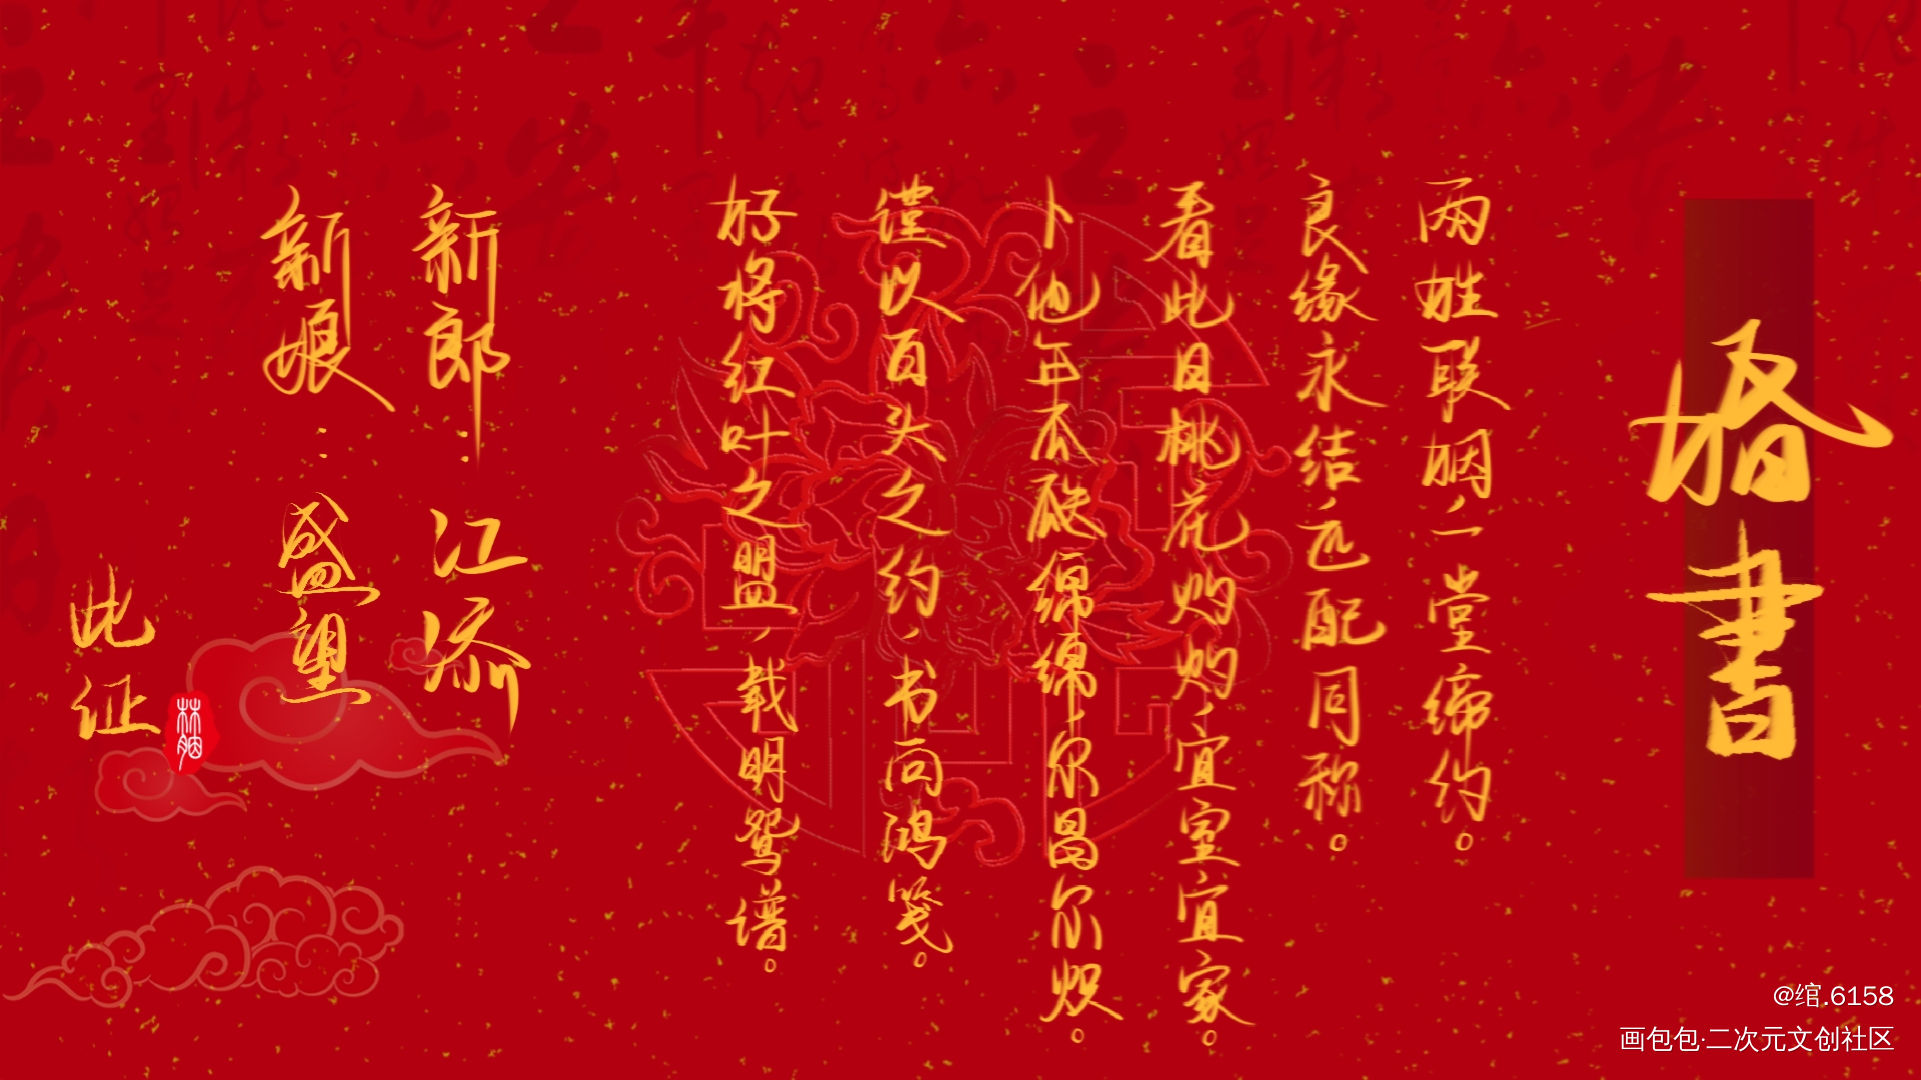 婚書
两姓联姻、一堂缔约。
良缘永结、匹配同称。
看此日桃花灼灼、宜室宜家。
卜他年瓜瓞绵绵、尔昌尔炽。
谨以百头之约、书向鸿笺。
好将红叶之盟、载明鸳谱。
新郎：江添
新娘：盛望
此证
@绾.6158
画包包·二次元文创社区